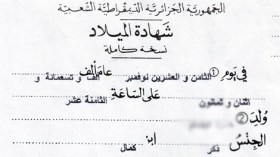 الجمهورية الجزائرية الديمقراطية الشعبية
شهادة الميلاد
نسخة كاملة
في يوم ① الثامن و العشرين نوفمبر عام ألف و تسعمائة و
اثنان و ثمانون على الساعة الثامنة عشر
ولد ②
الجنس ذكر ابن كمال